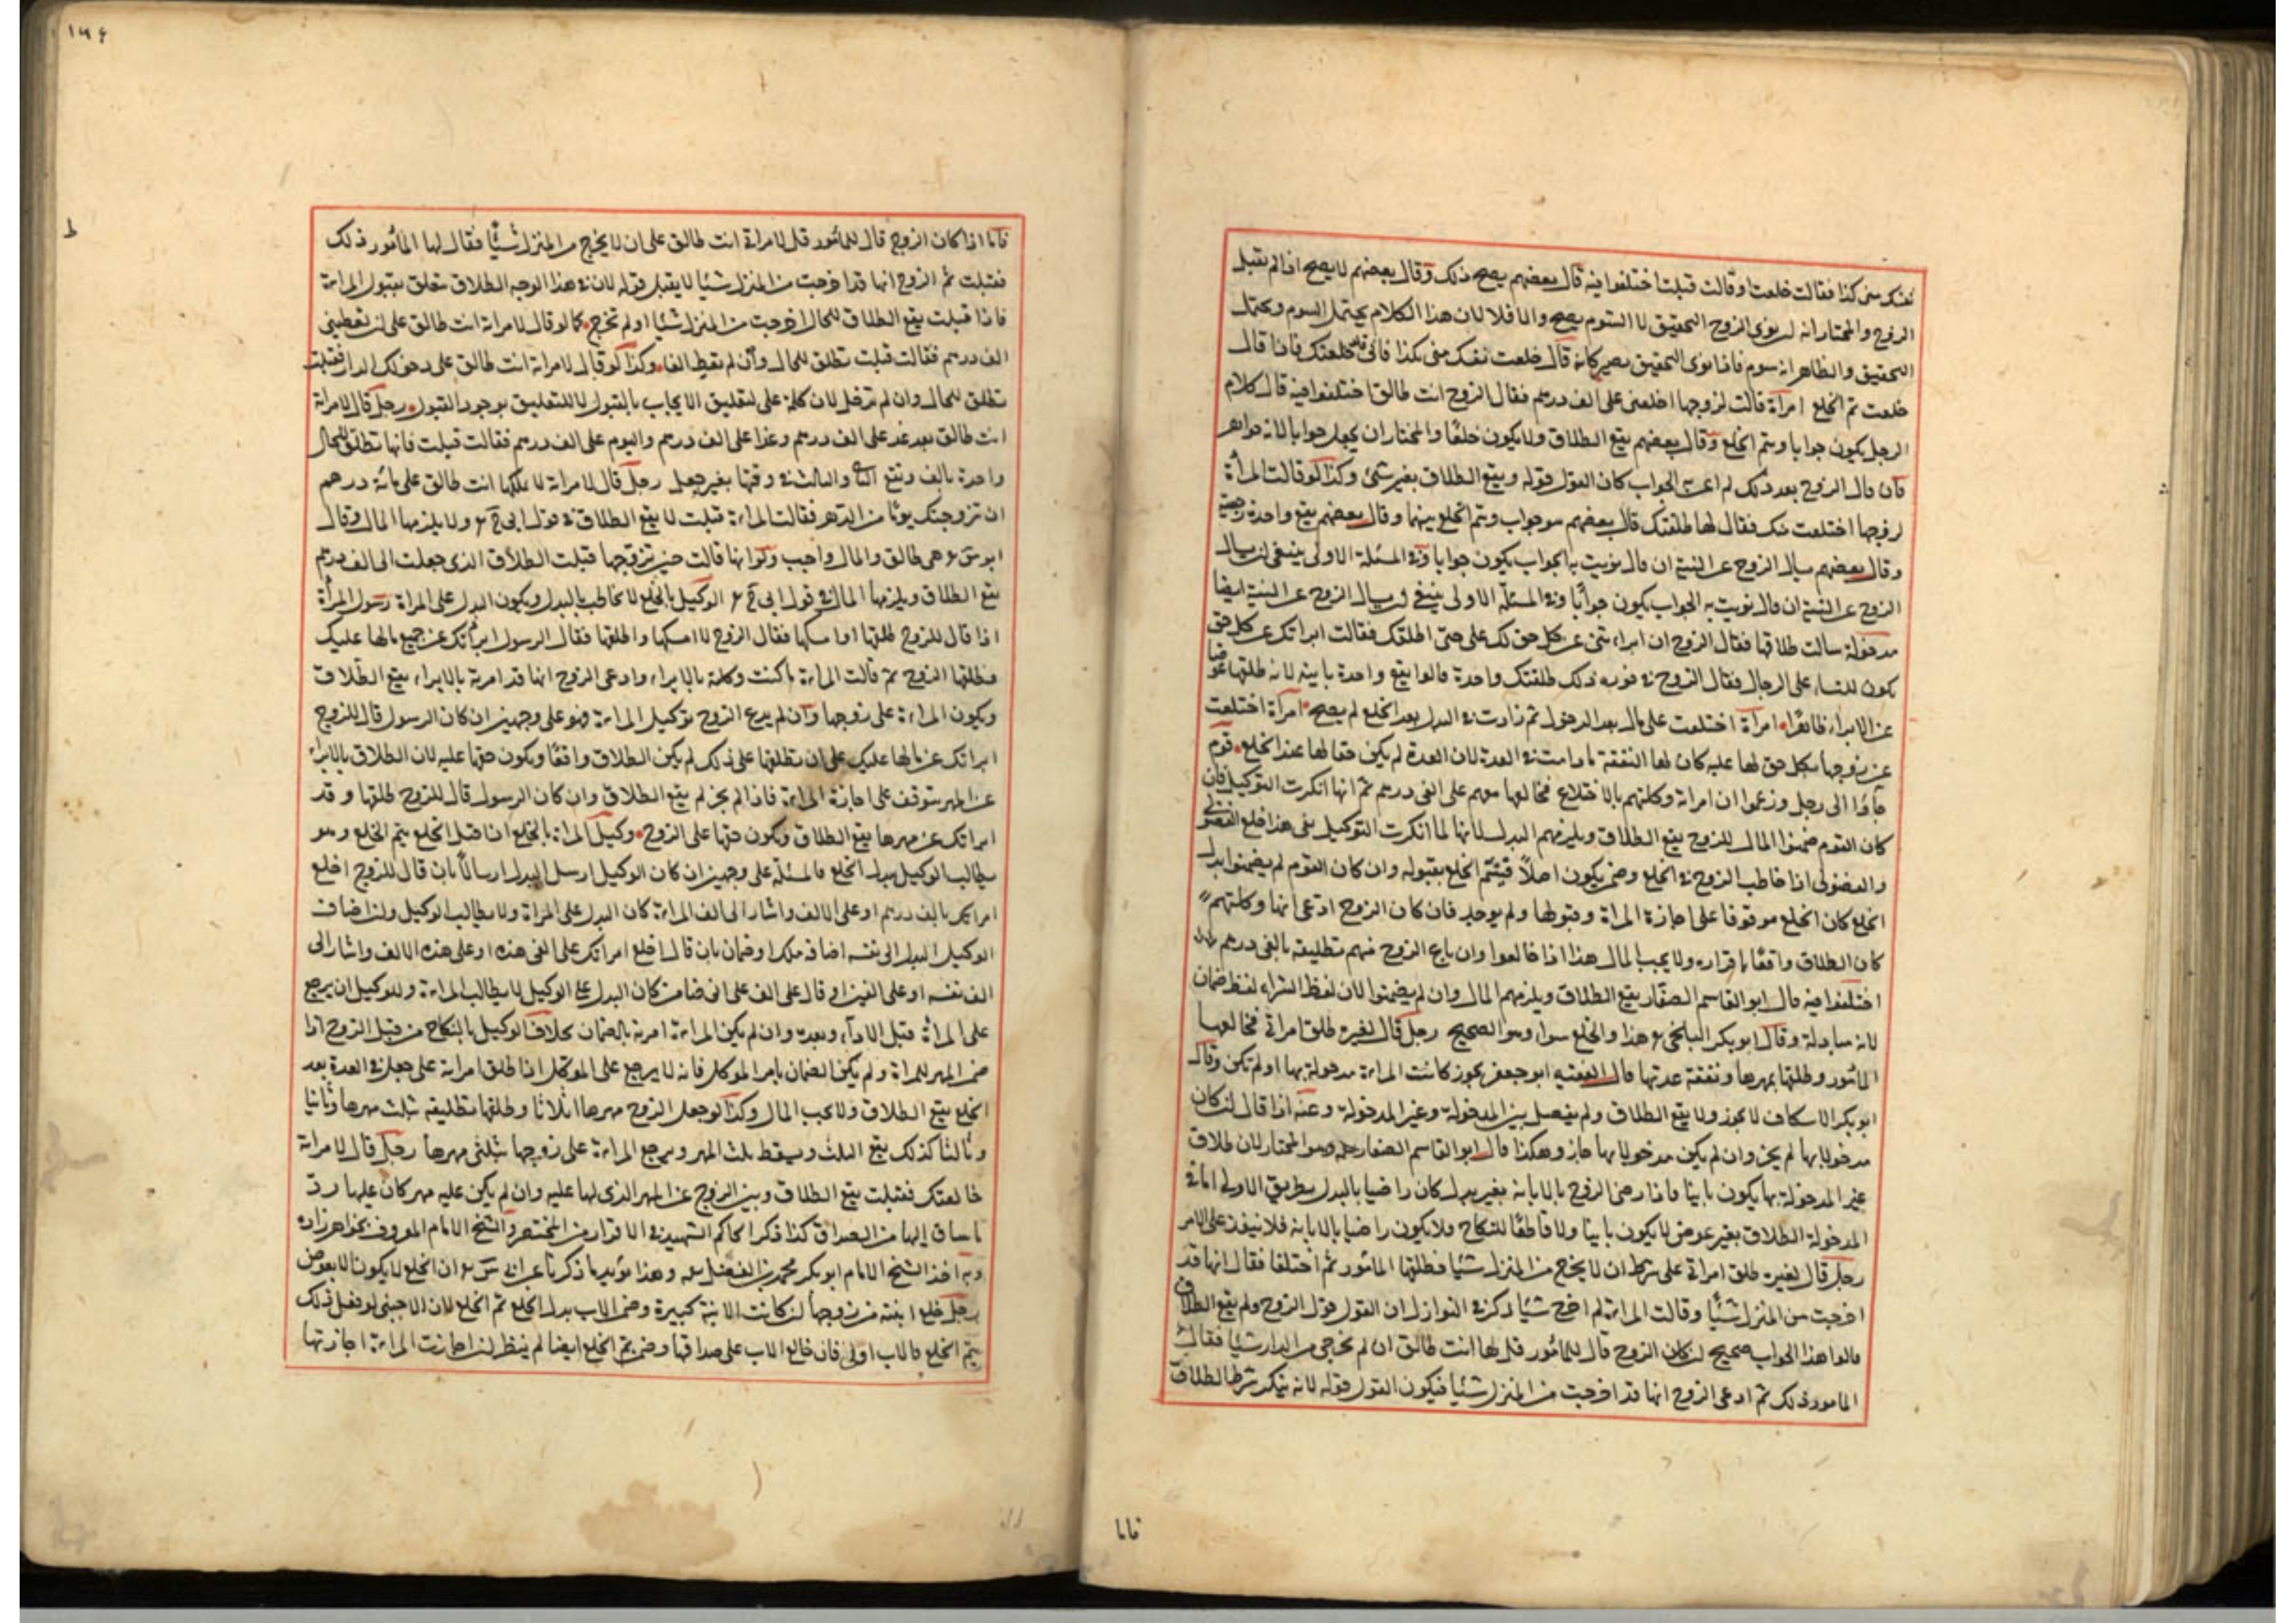 نفسك مني كذا فقالت خلعت او قالت قبلت اختلفوا فيه قال بعضهم يصح ذلك وقال بعضهم لا يصح اذا لم يقبل
الزوج والمختار انه ان نوى الزوج التحقيق لا السوم يصح والا فلا لان هذا الكلام يحتمل السوم ويحتمل
التحقيق والظاهر انه سوم فاذا نوى التحقيق يصير كانه قال خلعت نفسك مني بكذا فاني قد خلعتك فاذا قال
خلعت تم الخلع امرأة قالت لزوجها اخلعني على الف درهم فقال الزوج انت طالق اختلفوا فيه قال كلام
الرجل يكون جوابا ويتم الخلع وقال بعضهم يقع الطلاق ولا يكون خلعا والمختار ان يجعل جوابا لانه جواب
فان قال الزوج بعد ذلك لم اعن به الجواب كان القول قوله ويقع الطلاق بغير شئ وكذا لو قالت المرأة
لزوجها اختلعت منك فقال لها طلقتك قال بعضهم هو جواب ويتم الخلع بينهما وقال بعضهم يقع واحدة رجعية
وقال بعضهم يسال الزوج عن النية ان قال نويت به الجواب يكون جوابا وفي المسئلة الاولى ينبغي ان يسال
الزوج عن النية ان قال نويت به الجواب يكون جوابا وفي المسئلة الاولى ينبغي ان يسال الزوج عن النية ايضا
مدخولة سالت طلاقها فقال الزوج ان ابراءتني عن كل حق لك على حتى اطلقك فقالت ابراتك عن كل حق
يكون للنساء على الرجال فقال الزوج في فوره ذلك طلقتك واحدة قالوا يقع واحدة باينة لانه طلقها عوضا
عن الابراء ظاهرا امرأة اختلعت على مال بعد الدخول ثم زادت في البدل بعد الخلع لم يصح امرأة اختلعت
عن زوجها بكل حق لها عليه كان لها النفقة ما دامت في العدة لان العدة لم يكن حقا لها عند الخلع قوم
جاؤا الى رجل وزعموا ان امراته وكلتهم بالاختلاع فخالعها معهم على الفي درهم ثم انها انكرت التوكيل فان
كان القوم ضمنوا المال للزوج يقع الطلاق ويلزمهم البدل لانها لما انكرت التوكيل بقى هذا خلع الفضولي
والفضولي اذا خاطب الزوج في الخلع وضمن يكون اصلا فيتم الخلع بقبوله وان كان القوم لم يضمنوا بدل
الخلع كان الخلع موقوفا على اجازة المراة وقبولها ولم يوجد فان كان الزوج ادعى انها وكلتهم
كان الطلاق واقعا باقراره ولا يجب المال هذا اذا خالعوا وان باع الزوج منهم تطليقة بالفي درهم
اختلفوا فيه قال ابو القاسم الصفار يقع الطلاق ويلزمهم المال وان لم يضمنوا لان لفظ الشراء لفظ ضمان
لانه مبادلة وقال ابو بكر البلخي هذا والخلع سواء وهو الصحيح رجل قال لغيره طلق امراتي فخالعها
المأمور وطلقها بمهرها ونفقة عدتها قال الفقيه ابو جعفر يجوز كانت المراءة مدخولة بها او لم تكن وقال
ابو بكر الاسكاف لا يجوز ولا يقع الطلاق ولم يفصل بين المدخولة وغير المدخولة وعنه اذا قال ان كان
مدخولا بها لم يجز وان لم يكن مدخولا بها جاز وهكذا قال ابو القاسم الصفار وهو المختار لان طلاق
غير المدخولة بها يكون باينا فاذا رضى الزوج بالابانة بغير بدل كان راضيا بالبدل بطريق الاولى اما في
المدخولة الطلاق بغير عوض لا يكون باينا ولا قاطعا للنكاح ولا يكون راضيا بالابانة فلا ينفذ على الامر
رجل قال لغيره طلق امراتي على شرط ان لا يخرج من المنزل شيئا فطلقها المأمور ثم اختلفا فقال انها قد
اخرجت من المنزل شيئا وقالت المراءة لم اخرج شيئا ذكر في النوازل ان القول قول الزوج ولم يقع الطلاق
قالوا هذا الجواب صحيح ان كان الزوج قال للمأمور قل لها انت طالق ان لم تخرجي من الدار شيئا فقال
المامور ذلك ثم ادعى الزوج انها قد اخرجت من المنزل شيئا فيكون القول قوله لانه ينكر شرط الطلاق
فاما
١٥٤
ط
فاما اذا كان الزوج قال للمأمور قل لامراتي انت طالق على ان لا يخرج من المنزل شيئا فقال لها المأمور ذلك
فقبلت ثم الزوج انها قد اخرجت من المنزل شيئا لا يقبل قوله لان في هذا الوجه الطلاق متعلق بقبول المراءة
فاذا قبلت يقع الطلاق للحال اخرجت من المنزل شيئا او لم تخرج كما لو قال لامراته انت طالق على ان تعطيني
الف درهم فقالت قبلت تطلق للحال وان لم تعط الفا وكذا لو قال لامراته انت طالق على دخولك الدار فقبلت
تطلق للحال وان لم تدخل لان كلمة على لتعليق الايجاب بالقبول لا للتعليق بوجود القبول رجل قال لامراته
انت طالق بعد غد على الف درهم وغدا على الف درهم واليوم على الف درهم فقالت قبلت فانها تطلق للحال
واحدة بالف وتقع الثانية والثالثة في وقتها بغير جعل رجل قال لامراة لا يملكها انت طالق على مائة درهم
ان تزوجتك يوما من الدهر فقالت المراءة قبلت لا يقع الطلاق في قول ابي ح ولا يلزمها المال وقال
ابو س هي طالق والمال واجب ولو انها قالت حين تزوجها قبلت الطلاق الذي جعلت الى الف درهم
يقع الطلاق ويلزمها المال في قول ابي ح الوكيل بالخلع لا يخاطب بالبدل ويكون البدل على المراة رسول المرأة
اذا قال للزوج طلقها او امسكها فقال الزوج لا امسكها واطلقها فقال الرسول ابرأتك عن جميع ما لها عليك
فطلقها الزوج ثم قالت المراءة ما كنت وكلته بالابراء وادعى الزوج انها قد امرته بالابراء يقع الطلاق
ويكون المراءة على زوجها وان لم يدع الزوج توكيل المراءة فهو على وجهين ان كان الرسول قال للزوج
ابراتك عن مالها عليك على ان تطلقها على ذلك لم يكن الطلاق واقعا ويكون حقها عليه لان الطلاق بالابراء
عن المهر يتوقف على اجازة المراءة فاذا لم يجز لم يقع الطلاق وان كان الرسول قال للزوج طلقها وقد
ابراتك عن مهرها يقع الطلاق ويكون حقها على الزوج وكيل المراة بالخلع اذا قبل الخلع يتم الخلع وهو
يطالب الوكيل ببدل الخلع فالمسئلة على وجهين ان كان الوكيل ارسل البدل ارسالا بان قال للزوج اخلع
امراتك بالف درهم او على الالف واشار الى الف المراءة كان البدل على المراة ولا يطالب الوكيل وان اضاف
الوكيل البدل الى نفسه اضافة ملك او ضمان بان قال اخلع امراتك على الفي هذه او على هذه الالف واشار الى
الف نفسه او على الفين او قال على الف على اني ضامن كان البدل على الوكيل لا يطالب المراءة وللوكيل ان يرجع
على المرأة قبل الاداء وبعده وان لم يكن المراءة امرته بالضمان بخلاف الوكيل بالنكاح من قبل الزوج اذا
ضمن المهر للمراة ولم يكن الضمان بامر الموكل فانه لا يرجع على الموكل اذا طلق امراته على جعل في العدة بعد
الخلع يقع الطلاق ولا يجب المال وكذا لو جعل الزوج مهرها اثلاثا وطلقها تطليقة بثلث مهرها وثانيا
وثالثا كذلك يقع الثلث ويسقط ثلث المهر ويرجع المراءة على زوجها بثلثي مهرها رجل قال لامراته
خالعتك فقبلت يقع الطلاق ويبرئ الزوج عن المهر الذي لها عليه وان لم يكن عليه مهر كان عليها رد
ما ساق اليها من الصداق كذا ذكر الحاكم الشهيد في الاقرار من المختصر والشيخ الامام المعروف بخواهر زاده
وبه اخذ الشيخ الامام ابو بكر محمد بن الفضل وهذا يؤيد ما ذكرنا عن ابي س ان الخلع لا يكون الا بعوض
رجل خلع ابنته من زوجها ان كانت الابنة كبيرة وضمن الاب بدل الخلع تم الخلع لان الاجنبي لو فعل ذلك
يتم الخلع فالاب اولى فان خالع الاب على صداقها وضمن يتم الخلع ايضا ثم ينظر ان اجازت المراءة اجازتها